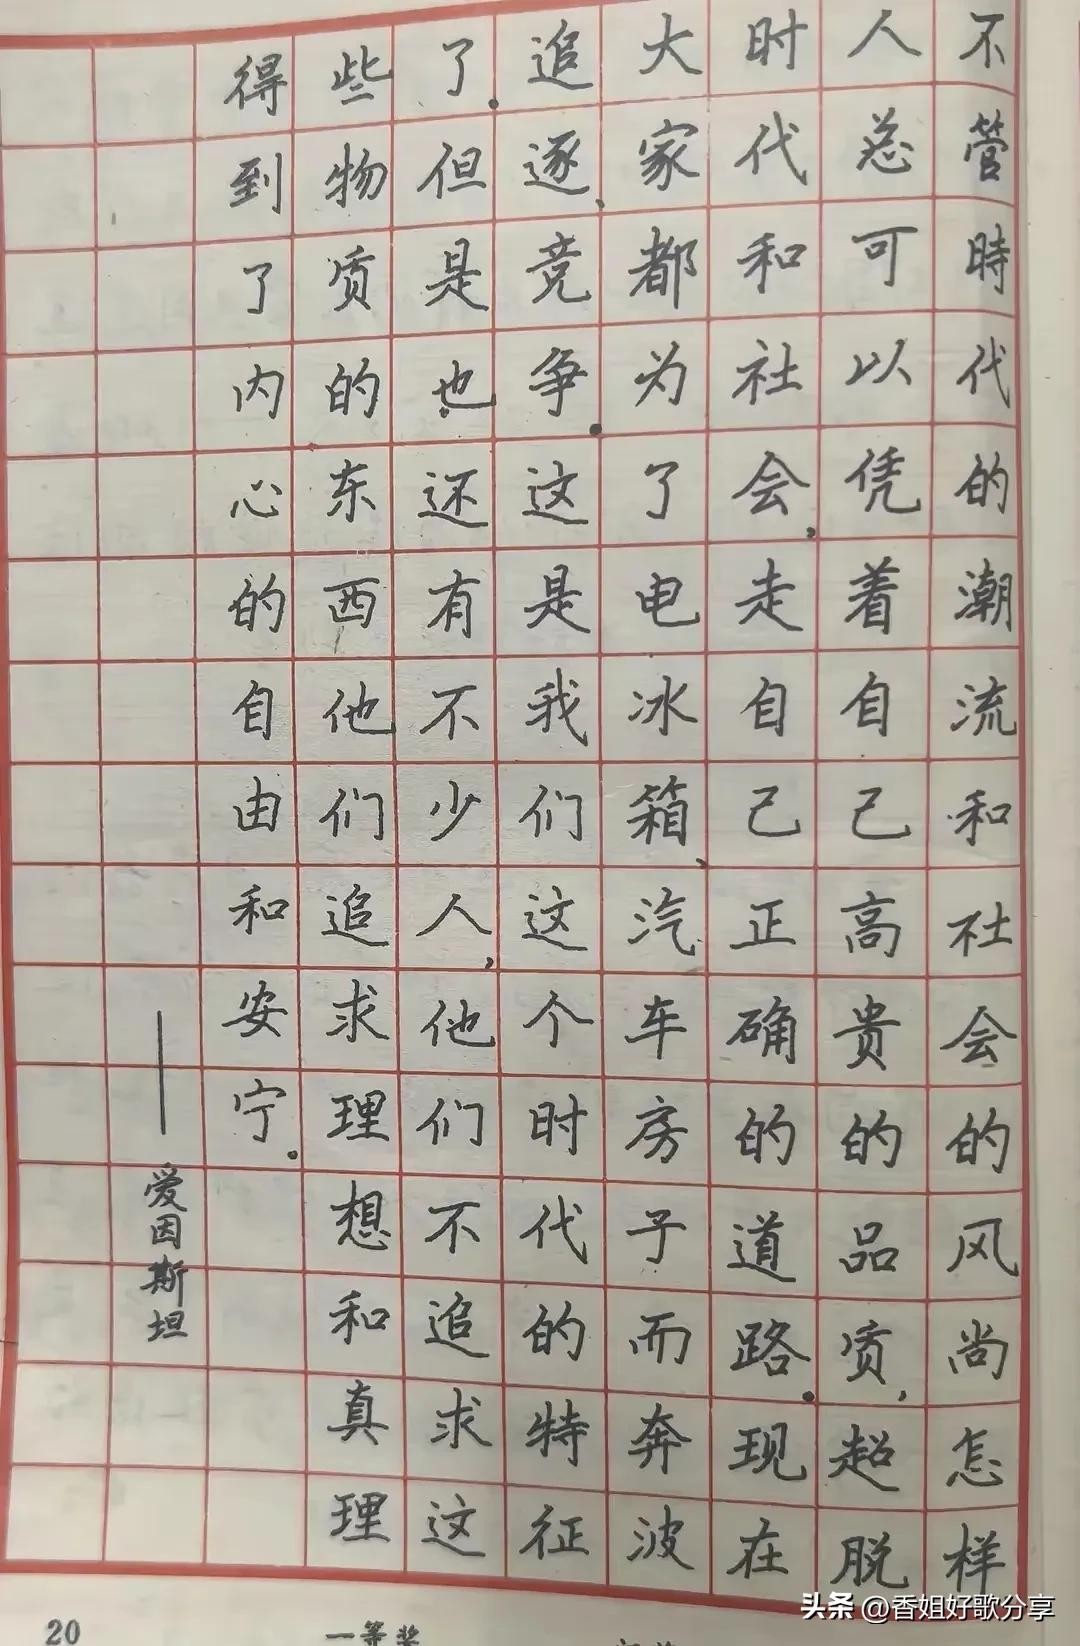 不管時代的潮流和社会的风尚怎样
人总可以凭着自己高贵的品质,超脱
时代和社会,走自己正确的道路.现在
大家都为了电冰箱、汽车房子而奔波
追逐、竞争.这是我们这个时代的特征
了.但是也还有不少人,他们不追求这
些物质的东西他们追求理想和真理
得到了内心的自由和安宁.
——爱因斯坦
20
一等奖
头条 @香姐好歌分享